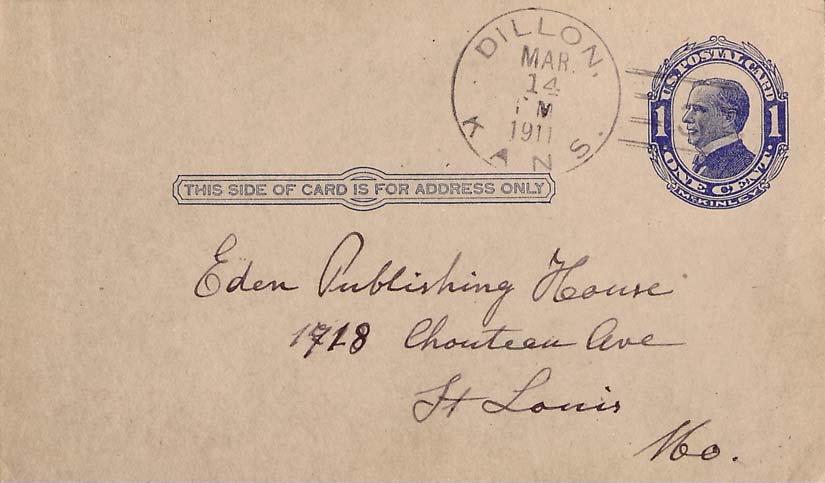 DILLON,
MAR.
14
PM
1911
KANS.
U.S. POSTAL CARD
1 1
ONE CENT
McKINLEY
THIS SIDE OF CARD IS FOR ADDRESS ONLY
Eden Publishing House
1718 Chouteau Ave
St Louis
Mo.